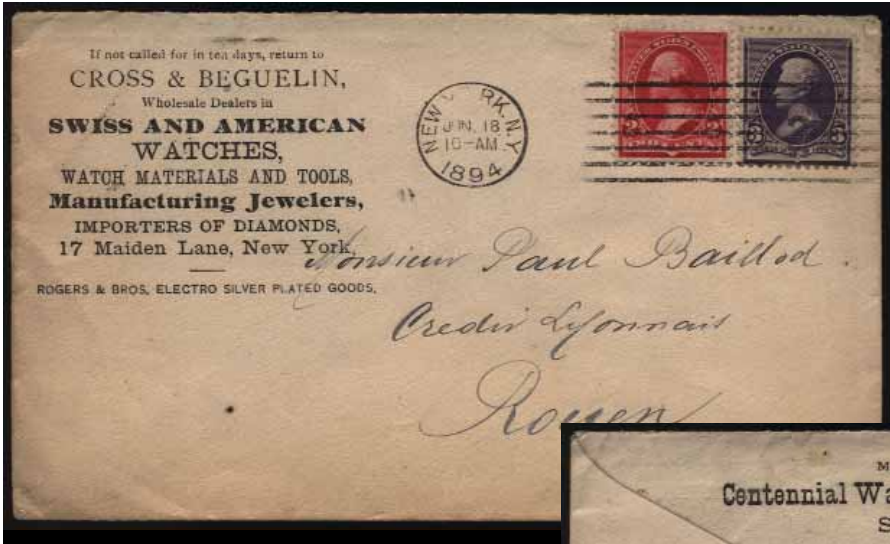 If not called for in ten days, return to
CROSS & BEGUELIN,
Wholesale Dealers in
SWISS AND AMERICAN
WATCHES,
WATCH MATERIALS AND TOOLS,
Manufacturing Jewelers,
IMPORTERS OF DIAMONDS,
17 Maiden Lane, New York,
ROGERS & BROS, ELECTRO SILVER PLATED GOODS,
NEW YORK, N.Y.
JUN. 18
10-AM
1894
2 2
3 3
Monsieur Paul Baillod.
Credit Lyonnais
Rouen
M
Centennial Wa
S